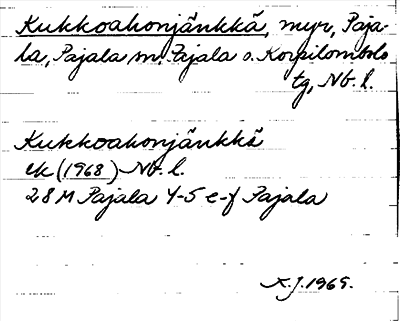 Kukkoahonjänkkä, myr, Paja-
la, Pajala m. Pajala o. Korpilombolo
tg, Nb. l.
Kukkoahonjänkkä
ek (1968) Nb. l.
28 M Pajala 4-5 e-f Pajala
K.J. 1969.